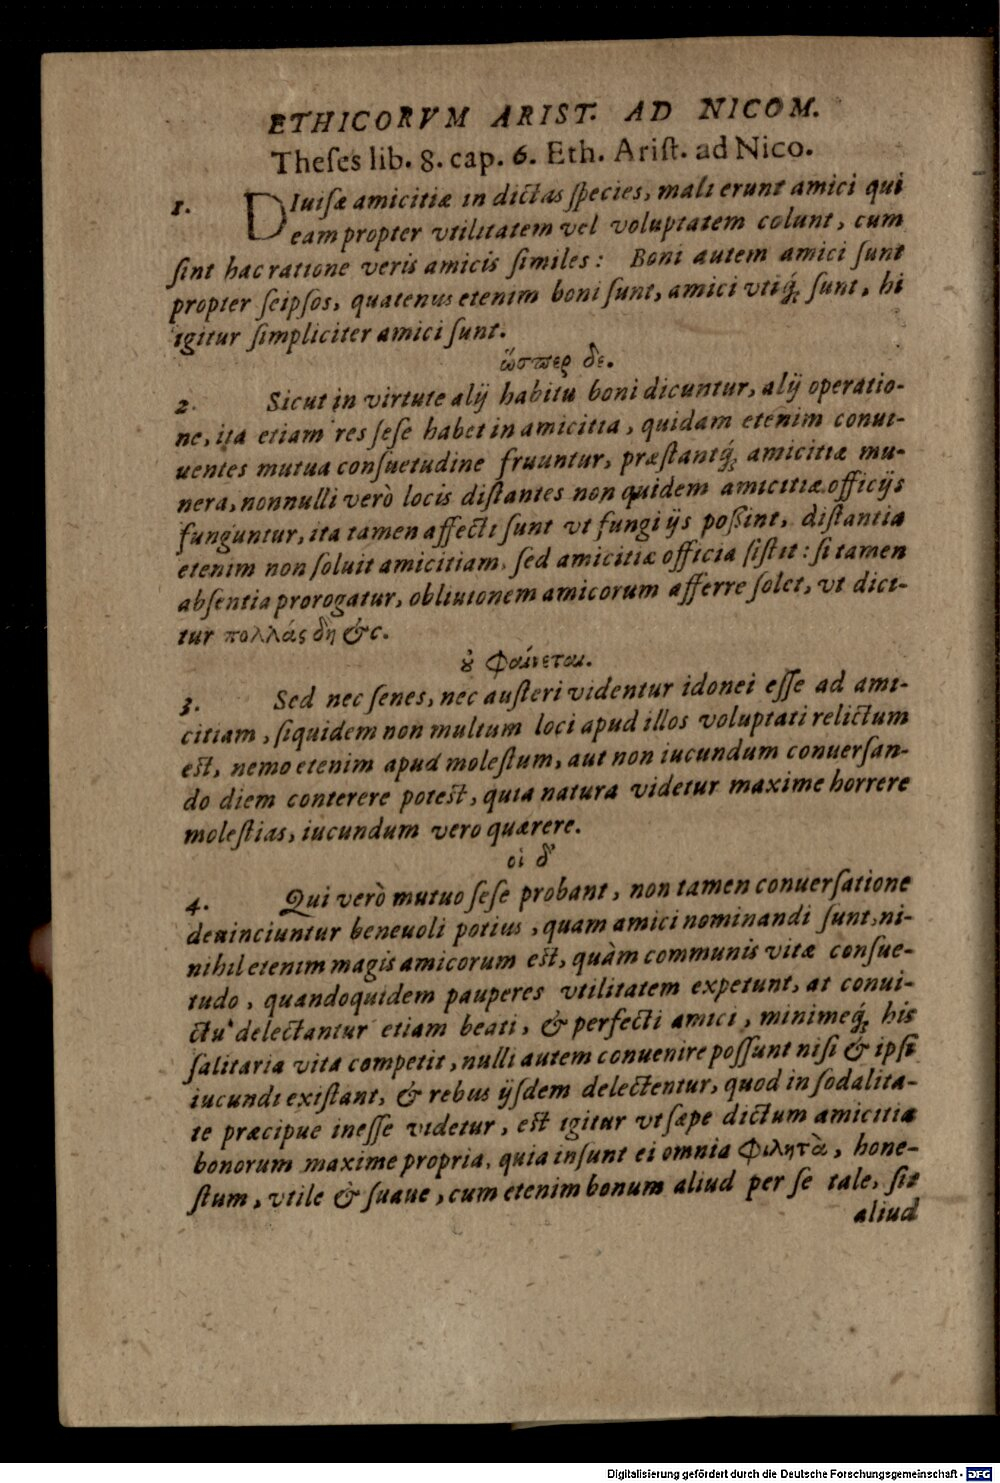 ETHICORVM ARIST. AD NICOM.
Theſes lib. 8. cap. 6. Eth. Ariſt. ad Nico.
1. DIuiſæ amicitiæ in dictas ſpecies, mali erunt amici qui
eam propter vtilitatem vel voluptatem colunt, cum
ſint hac ratione veris amicis ſimiles: Boni autem amici ſunt
propter ſeipſos, quatenus etenim boni ſunt, amici vtiq́; ſunt, hi
igitur ſimpliciter amici ſunt.
ὥσπερ δε.
2. Sicut in virtute alij habitu boni dicuntur, alij operatio-
ne, ita etiam res ſeſe habet in amicitia, quidam etenim conui-
uentes mutua conſuetudine fruuntur, præſtantq́; amicitiæ mu-
nera, nonnulli verò locis diſtantes non quidem amicitiæ officijs
funguntur, ita tamen affecti ſunt vt fungi ijs poßint, diſtantia
etenim non ſoluit amicitiam, ſed amicitiæ officia ſiſtit: ſi tamen
abſentia prorogatur, obliuionem amicorum afferre ſolet, vt dici-
tur πολλάς δὴ &c.
ȣ φαίνεται.
3. Sed nec ſenes, nec auſteri videntur idonei eſſe ad ami-
citiam, ſiquidem non multum loci apud illos voluptati relictum
est, nemo etenim apud moleſtum, aut non iucundum conuerſan-
do diem conterere potest, quia natura videtur maxime horrere
moleſtias, iucundum vero quærere.
οἱ δ'
4. Qui verò mutuo ſeſe probant, non tamen conuerſatione
deuinciuntur beneuoli potius, quam amici nominandi ſunt, ni-
nihil etenim magis amicorum est, quàm communis vitæ conſue-
tudo, quandoquidem pauperes vtilitatem expetunt, at conui-
ctu delectantur etiam beati, & perfecti amici, minimeq́; his
ſalitaria vita competit, nulli autem conuenire poſſunt niſi & ipſi
iucundi exiſtant, & rebus ijſdem delectentur, quod in ſodalita-
te præcipue ineſſe videtur, est igitur vt ſæpe dictum amicitia
bonorum maxime propria, quia inſunt ei omnia φιλητὰ, hone-
ſtum, vtile & ſuaue, cum etenim bonum aliud per ſe tale, ſit
aliud
Digitalisierung gefördert durch die Deutsche Forschungsgemeinschaft - DFG